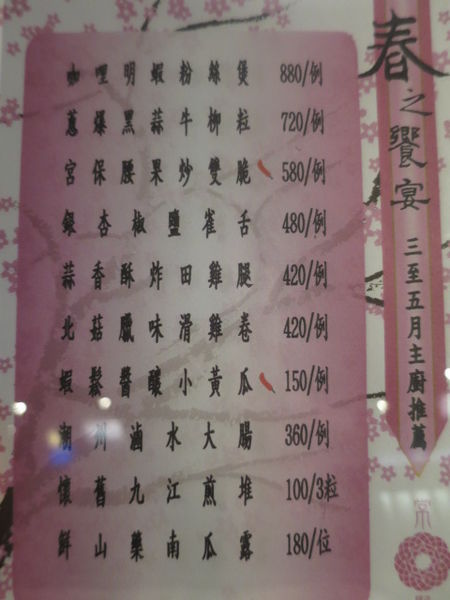 春之饗宴 三至五月主廚推薦
咖哩明蝦粉絲煲 880/例
蔥爆黑蒜牛柳粒 720/例
宮保腰果炒雙脆 580/例
銀杏椒鹽雀舌 480/例
蒜香酥炸田雞腿 420/例
北菇臘味滑雞卷 420/例
蝦鬆醬釀小黃瓜 150/例
潮州滷水大腸 360/例
懷舊九江煎堆 100/3粒
鮮山藥南瓜露 180/位
京